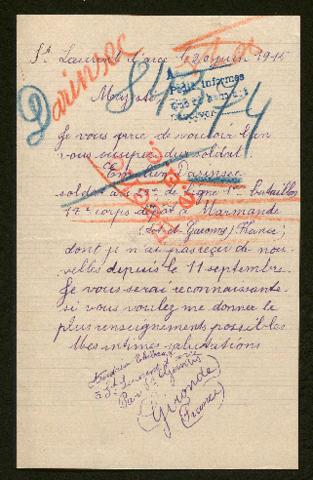 St Laurent d'arce le 2 juin 1915
Darinsec
84274
Pedir informes
Majesté
Je vous prie de vouloir bien
vous occuper du soldat
Emilien Darinsec
soldat au de ligne 1er Bataillon
17e corps dépot à Marmande
(Lot-et-Garonne) (France)
dont je n'ai pas reçu de nou-
velles depuis le 11 septembre.
Je vous serai reconnaissante
si vous voulez me donner le
plus renseignements possibles
Mes intimes salutations
à St Laurent d'arce
Par St
(Gironde)
(France)